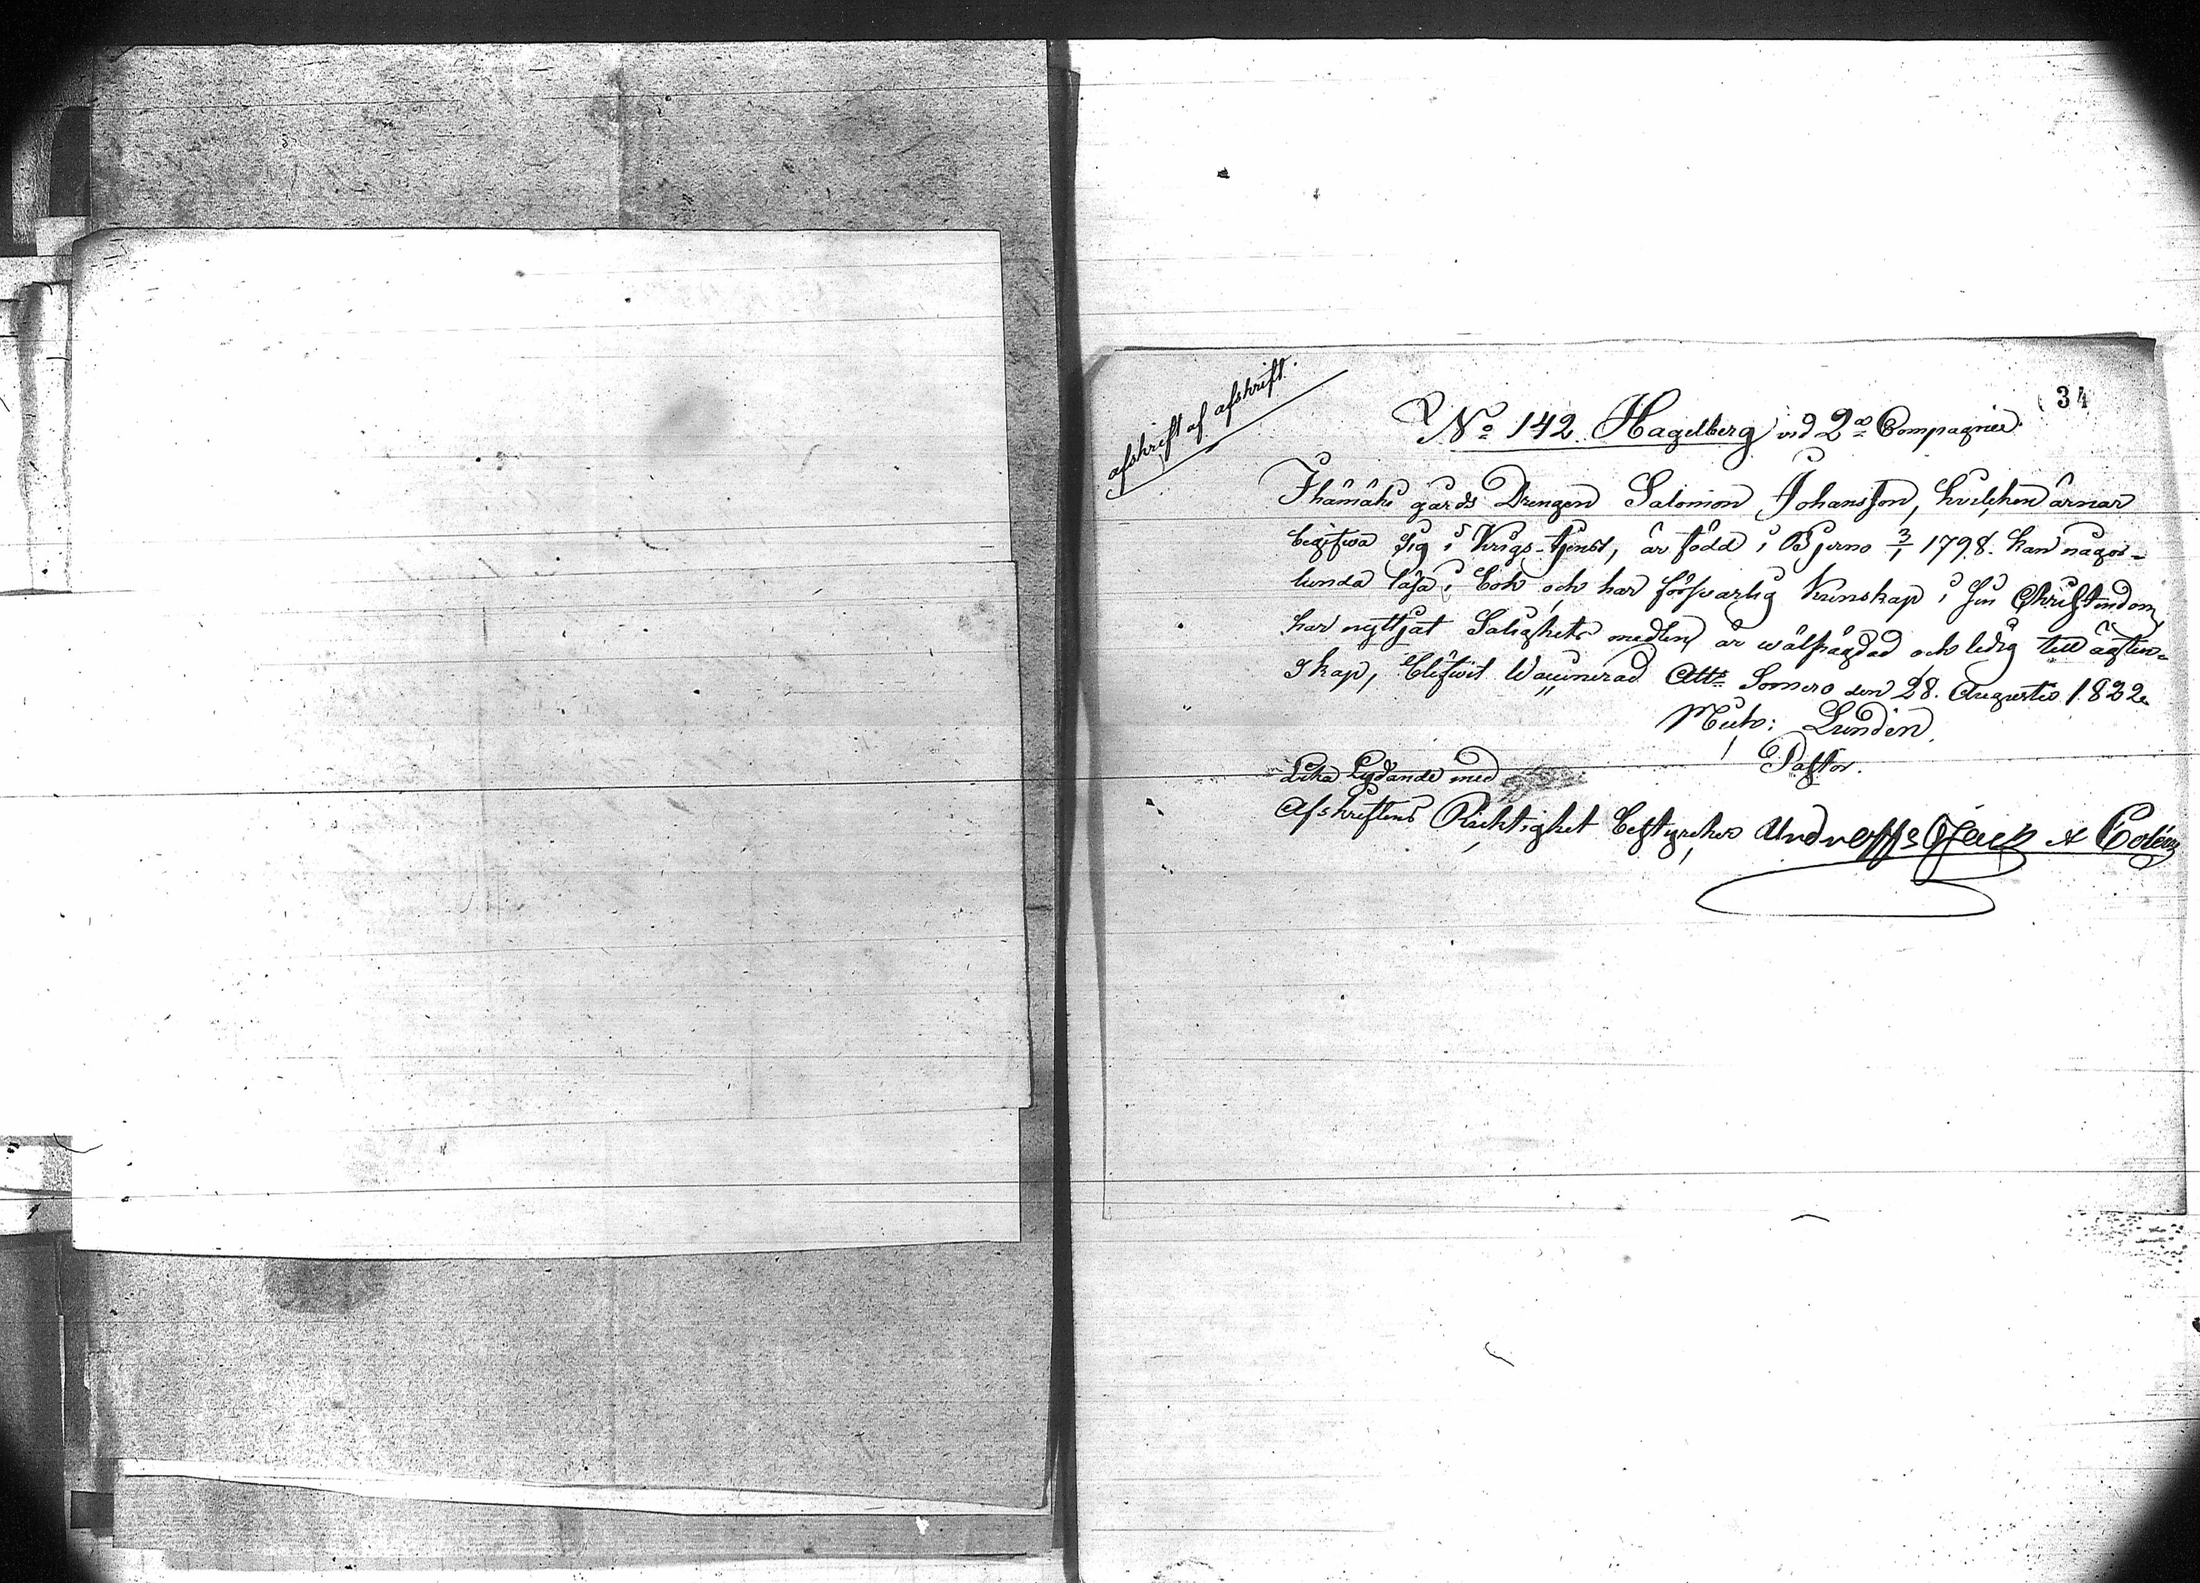 34
afskrift af afskrift.
No 142 Hagelberg vid 2a Compagniet
Ihamäki gårds Drengen Salomon Johansson, hvilcken ärnar
begifwa sig i Krigs-tjenst, är född i Bjerno 3/1 1798. kan någor-
lunda läsa i bok och har försvarlig Kunskap i sin Christendom
har nyttjat Salighets medlen är wälfrägdad och ledig till ägten-
skap, blifwit Waccinerad Atts: Somero den 28. Augusti 1822.
Lundén.
Pastor.
Lika Lydande med
Afskriftens Ricktighet bestyrcker